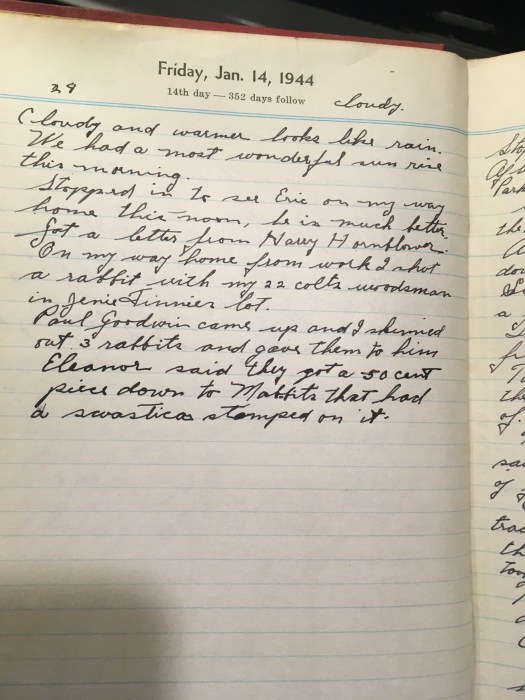 Friday, Jan. 14, 1944
14th day — 352 days follow
28
cloudy.
Cloudy and warmer looks like rain.
We had a most wonderful sun rise
this morning.
Stopped in to see Eric on my way
home this noon, he is much better.
Got a letter from Harry Hornblower.
On my way home from work I shot
a rabbit with my 22 colts woodsman
in Jenie Finnies lot.
Paul Goodwin came up and I skinned
out 3 rabbits and gave them to him
Eleanor said they got a 50 cent
piece down to Mabbits that had
a swastica stamped on it.